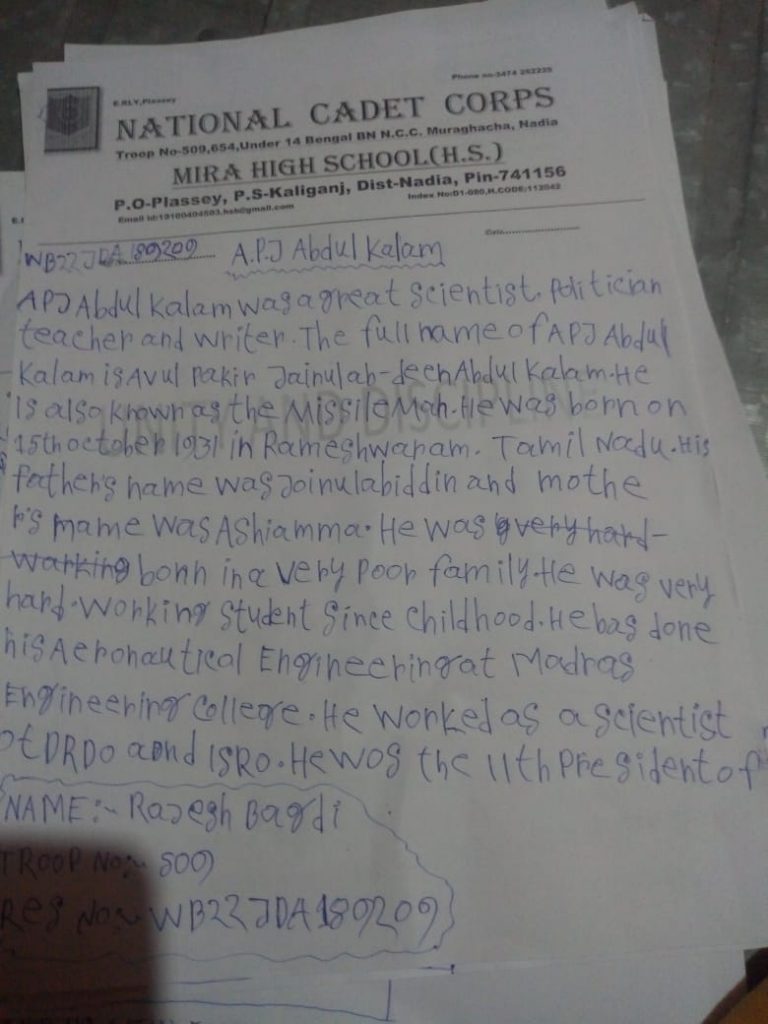 Phone no-3474 262225
E.RLY, Plassey
NATIONAL CADET CORPS
Troop No-509,654,Under 14 Bengal BN N.C.C. Muraghacha, Nadia
MIRA HIGH SCHOOL(H.S.)
P.O-Plassey, P.S-Kaliganj, Dist-Nadia, Pin-741156
Email Id:19100404503.hsh@gmail.com Index No:D1-080,H.CODE:112042
Date
WB22JDA189209 A.P.J Abdul Kalam
APJ Abdul Kalam was a great scientist. politician
teacher and writer. The full name of APJ Abdul
Kalam is Avul pakir Jainulab-deen Abdul Kalam. He
is also known as the Missile Man. He was born on
15th october 1931 in Rameshwaram. Tamil Nadu. His
father's name was Joinulabiddin and mothe
r's name was Ashiamma. He was very hard-
warking born in a very poor family. He was very
hard-working student since childhood. He has done
his Aeronautical Engineering at Madras
Engineering College. He worked as a scientist
of DRDO aond ISRO. He wos the 11th President of
UNITY AND DISCIPLINE
NAME:- Rajesh Bagdi
TROOP NO:- 509
Reg No:- WB22JDA189209